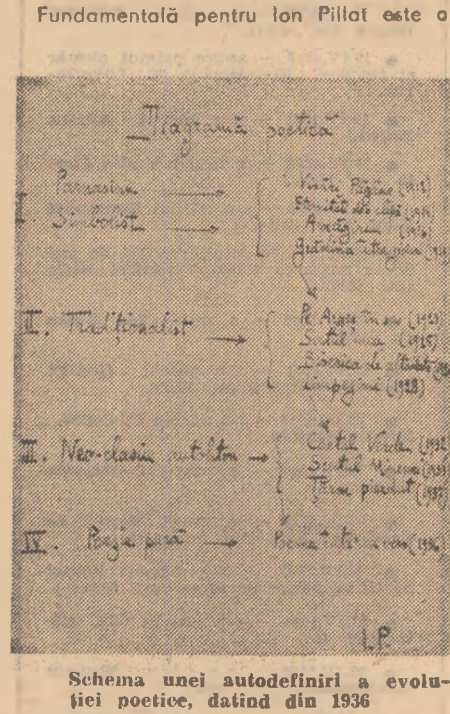 Fundamentală pentru Ion Pillat este o
Diagramă poetică
I. Parnasian →
Simbolist →
Visări Păgâne (1912)
Eternități de-o clipă (1914)
Amăgiri (1916)
Grădina între ziduri
II. Tradiționalist →
Pe Argeș în sus (1923)
Satul meu (1925)
Biserica de altădată
Limpezimi (1928)
III. Neo-clasic autohton →
Caietul Verde (1932)
Scutul Minervei
Țărm pierdut (1937)
IV. Poezie pură →
Poeme într-un vers (1936)
I.P.
Schema unei autodefiniri a evolu-
ției poetice, datînd din 1936